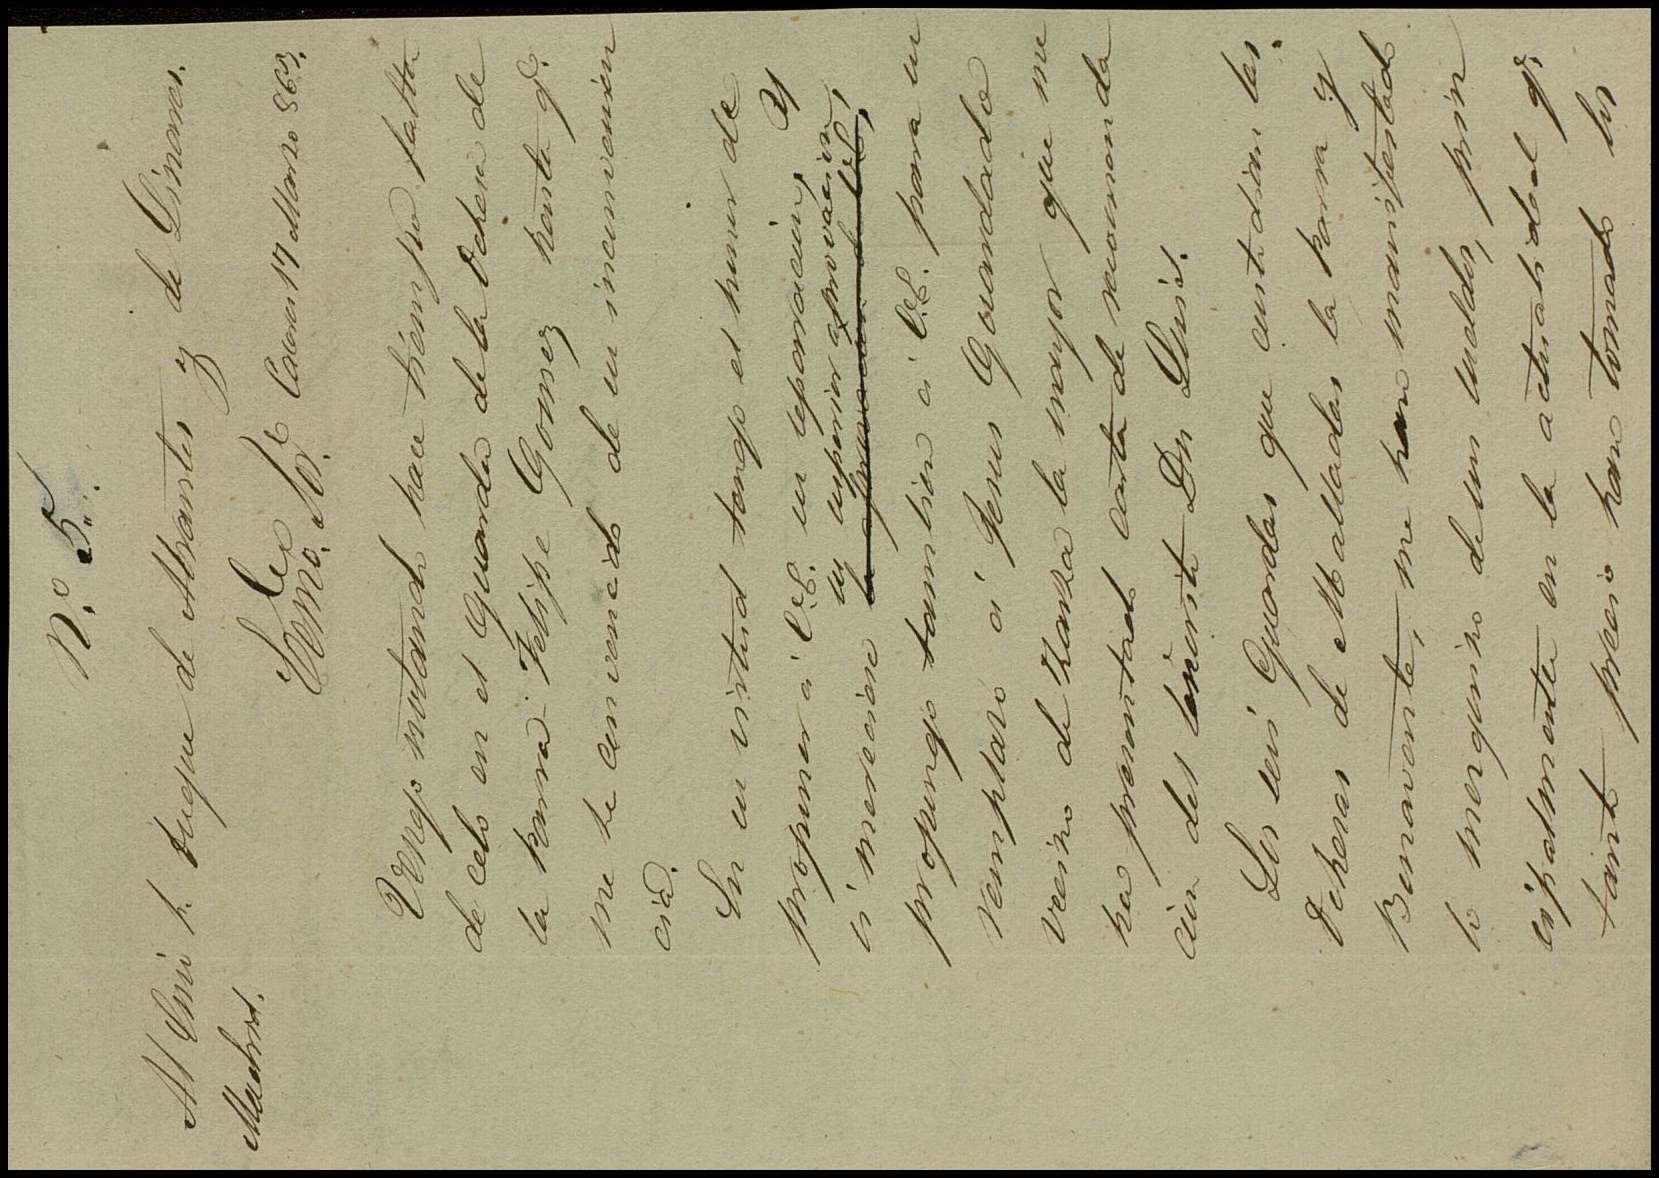 N.º 5.
Al Exmo S. Duque de Abrantes y de Linares.
Madrid.
Exmo. Sor. Caceres 17 Marzo 863.
Vengo notando hace tiempo falta
de celo en el Guarda de la Dehesa de
la Parra Felipe Gomez hasta q.e
me he convencido de su inconvenien
cia.
En su virtud tengo el honor de
proponer a V.E. su separacion, y
si mereciese su superior aprovacion,
la aprovacion de V.E.,
propongo tambien a V.E. para su
reemplazo a Jesus Grandado
vecino de Zarza la mayor que me
ha presentado carta de recomenda
cion del Señorito Dn Luis.
Los seis Guardas que custodian las
Dehesas de Malladas la Parra y
Benavente, me han manifestado
lo mezquino de sus sueldos, prin
cipalmente en la actualidad q.e
tanto precio han tomado los